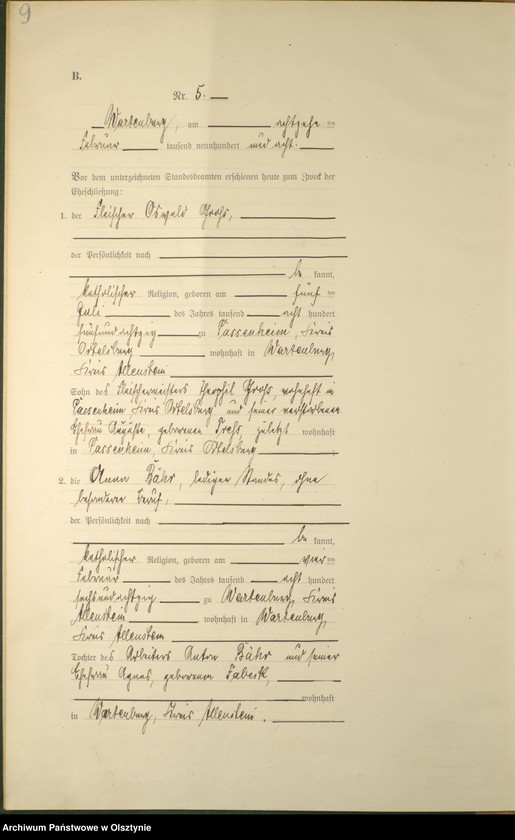 9
B.
Nr. 5.
Wartenburg, am achtzehn
Februar tausend neunhundert und acht.
Vor dem unterzeichneten Standesbeamten erschienen heute zum Zweck der
Eheschließung:
1. der Fleischer Oswald
der Persönlichkeit nach
be kannt,
katholischer Religion, geboren am fünf
Juli des Jahres tausend acht hundert
fünfundachtzig zu Passenheim, Kreis
Ortelsburg wohnhaft in Wartenburg,
Kreis Allenstein
Sohn des Fleischermeisters Theophil wohnhaft in
Passenheim Kreis Ortelsburg und seiner verstorbenen
Ehefrau Auguste, geborenen zuletzt wohnhaft
in Passenheim, Kreis Ortelsburg ;
2. die Anna Bähr, ledigen Standes, ohne
besonderen Beruf,
der Persönlichkeit nach
be kannt,
katholischer Religion, geboren am vier
Februar des Jahres tausend acht hundert
sechsundachtzig zu Wartenburg, Kreis
Allenstein wohnhaft in Wartenburg,
Kreis Allenstein
Tochter des Arbeiters Anton Bähr und seiner
Ehefrau Agnes, geborenen
wohnhaft
in Wartenburg, Kreis Allenstein.
Archiwum Państwowe w Olsztynie